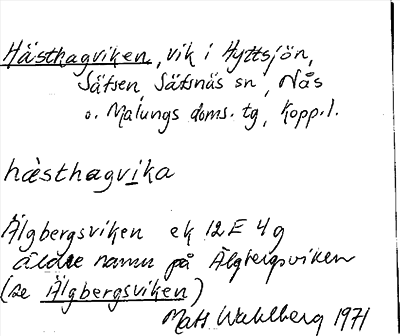 Hästhagviken, vik i Hyttsjön,
Säfsen, Säfsnäs sn, Nås
o. Malungs doms. tg, Kopp. l.
hàsthagvika
Älgbergsviken ek 12E 4g
äldre namn på Älgbergsviken
(se Älgbergsviken)
Mats Wahlberg 1971